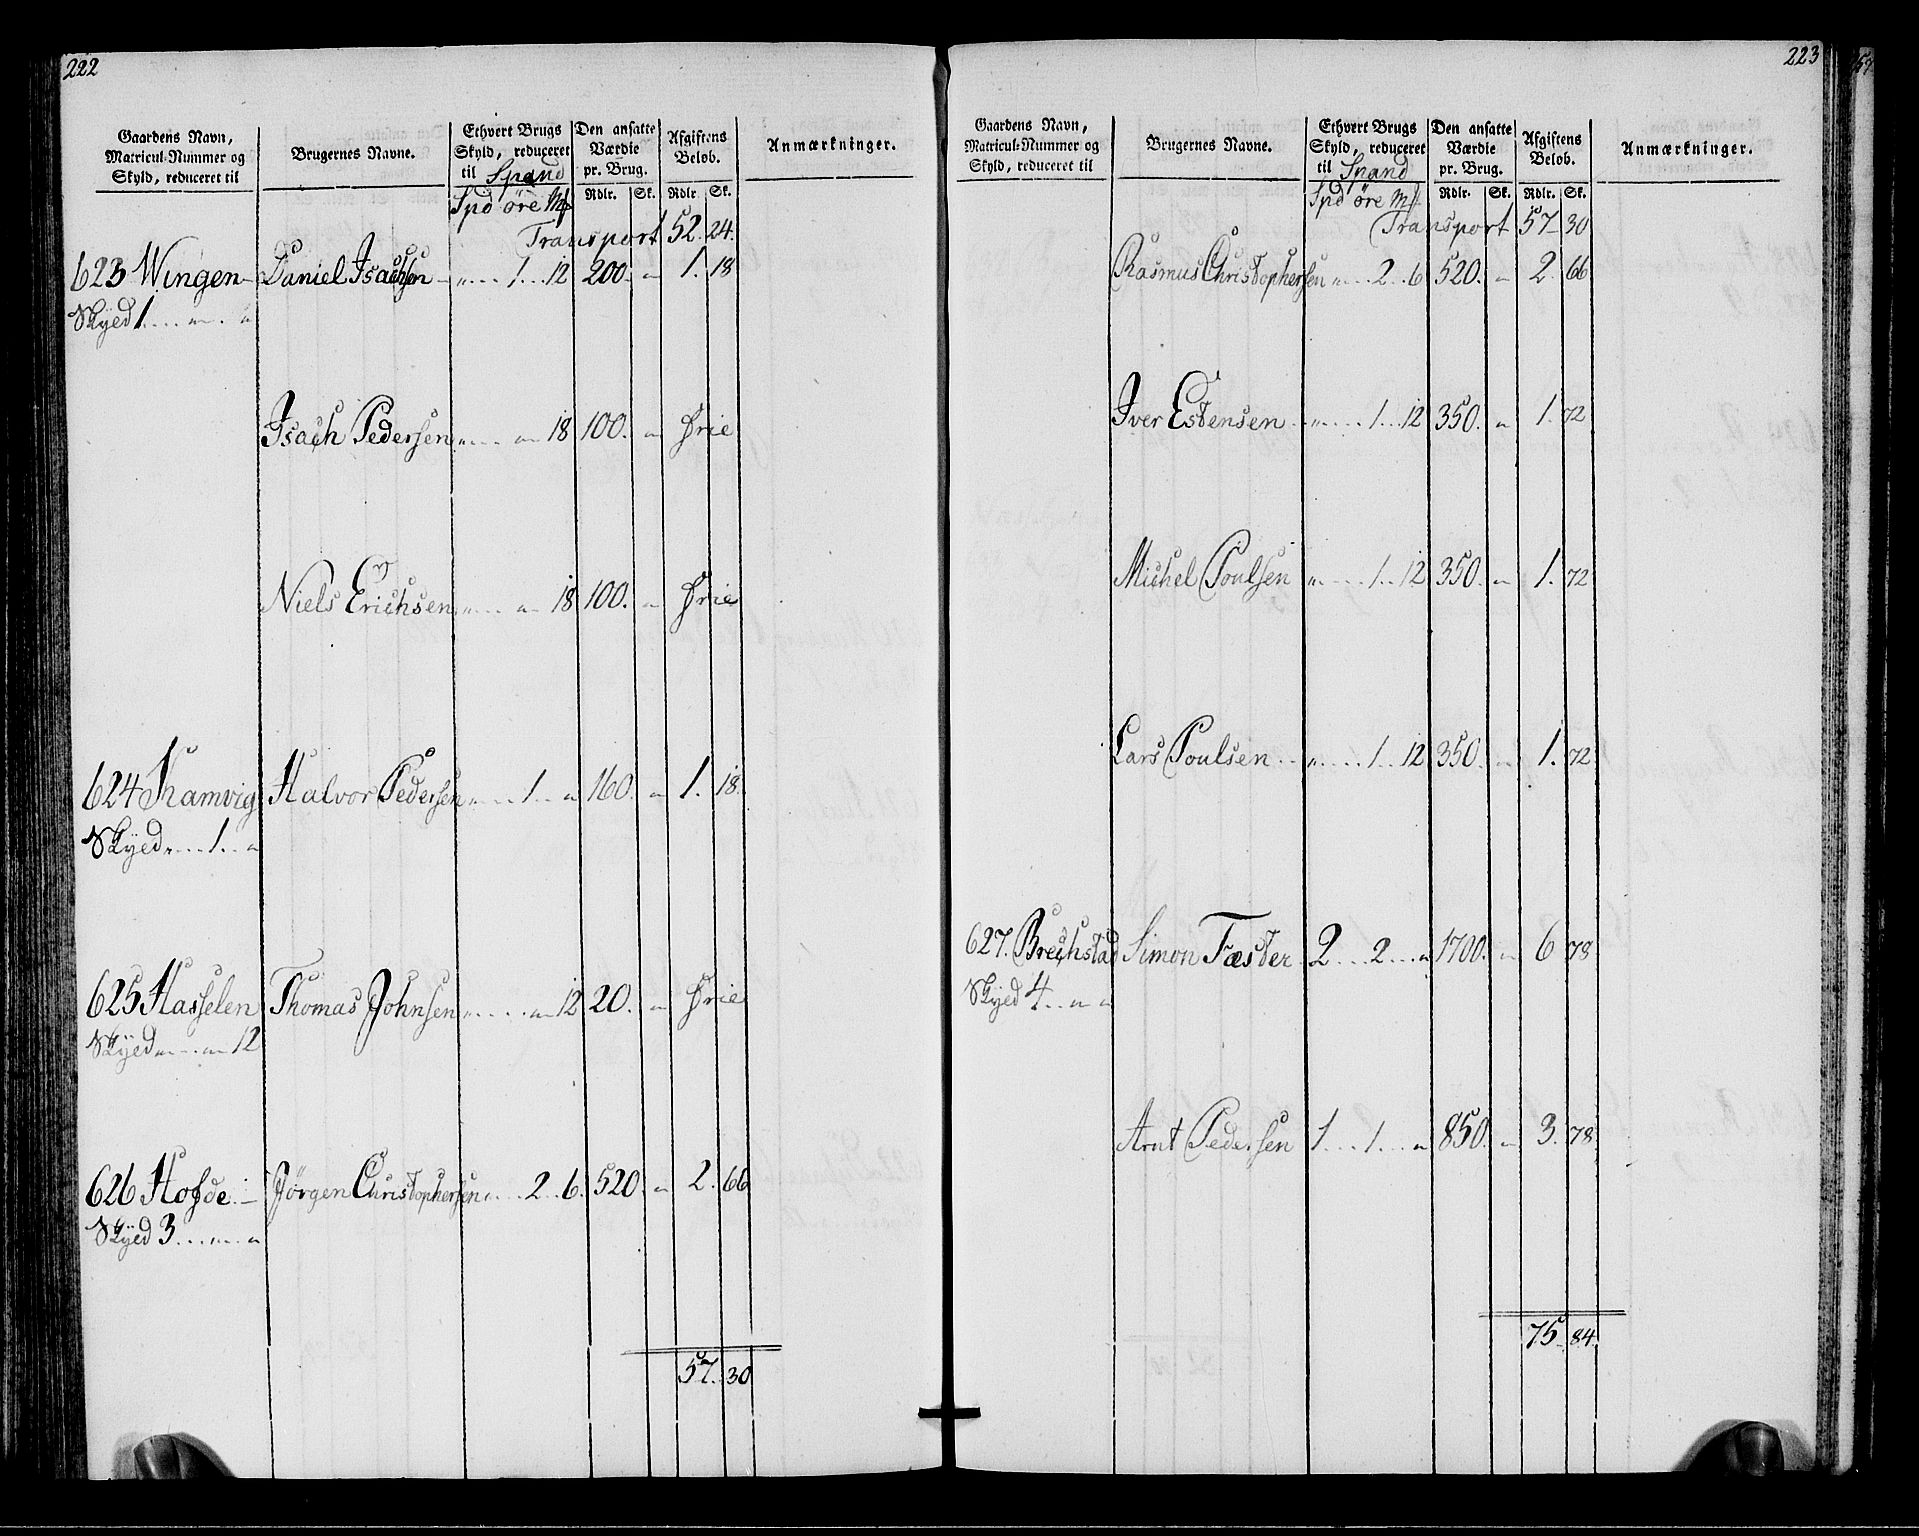 222
Gaardens Navn, Matricul-Nummer og Skyld, reduceret til
Brugernes Navne.
Ethvert Brugs Skyld, reduceret til Spand
Den ansatte Værdie pr. Brug.
Afgiftens Beløb.
Anmærkninger.
Spd öre Mk Rdlr. Sk. Rdlr. Sk.
Transport 52. 24.
623 Wingen Daniel Isachsen „ 1 12 200. „ 1. 18
Skyed 1 „ „
Isach Pedersen „ „ 18 100. „ Frie
Niels Erichsen „ „ 18 100. „ Frie
624 Hamvig Halvor Pedersen „ 1 „ 160. „ 1. 18.
Skyed „ 1 „
625 Hasselen Thomas Johnsen „ „ 12 20. „ Frie
Skyed „ „ 12
626 Hofde Jörgen Christophersen „ 2 6. 520. „ 2. 66
Skyed 3 „ „
57. 30
223
Gaardens Navn, Matricul-Nummer og Skyld, reduceret til
Brugernes Navne.
Ethvert Brugs Skyld, reduceret til Spand
Den ansatte Værdie pr. Brug.
Afgiftens Beløb.
Anmærkninger.
Spd öre Mk. Rdlr. Sk. Rdlr. Sk.
Transport 57 30
Rasmus Christophersen „ 2 6 520. „ 2. 66
Iver Estensen „ 1 12 350. „ 1. 72
Michel Poulsen „ 1 12 350. „ 1. 72
Lars Poulsen „ 1 12 350. „ 1. 72
627. Brechstad Simon Fæster 2 2 „ 1700. „ 6 78
Skyed 4 „ „
Arnt Pedersen 1 1 „ 850. „ 3. 78
75. 84.